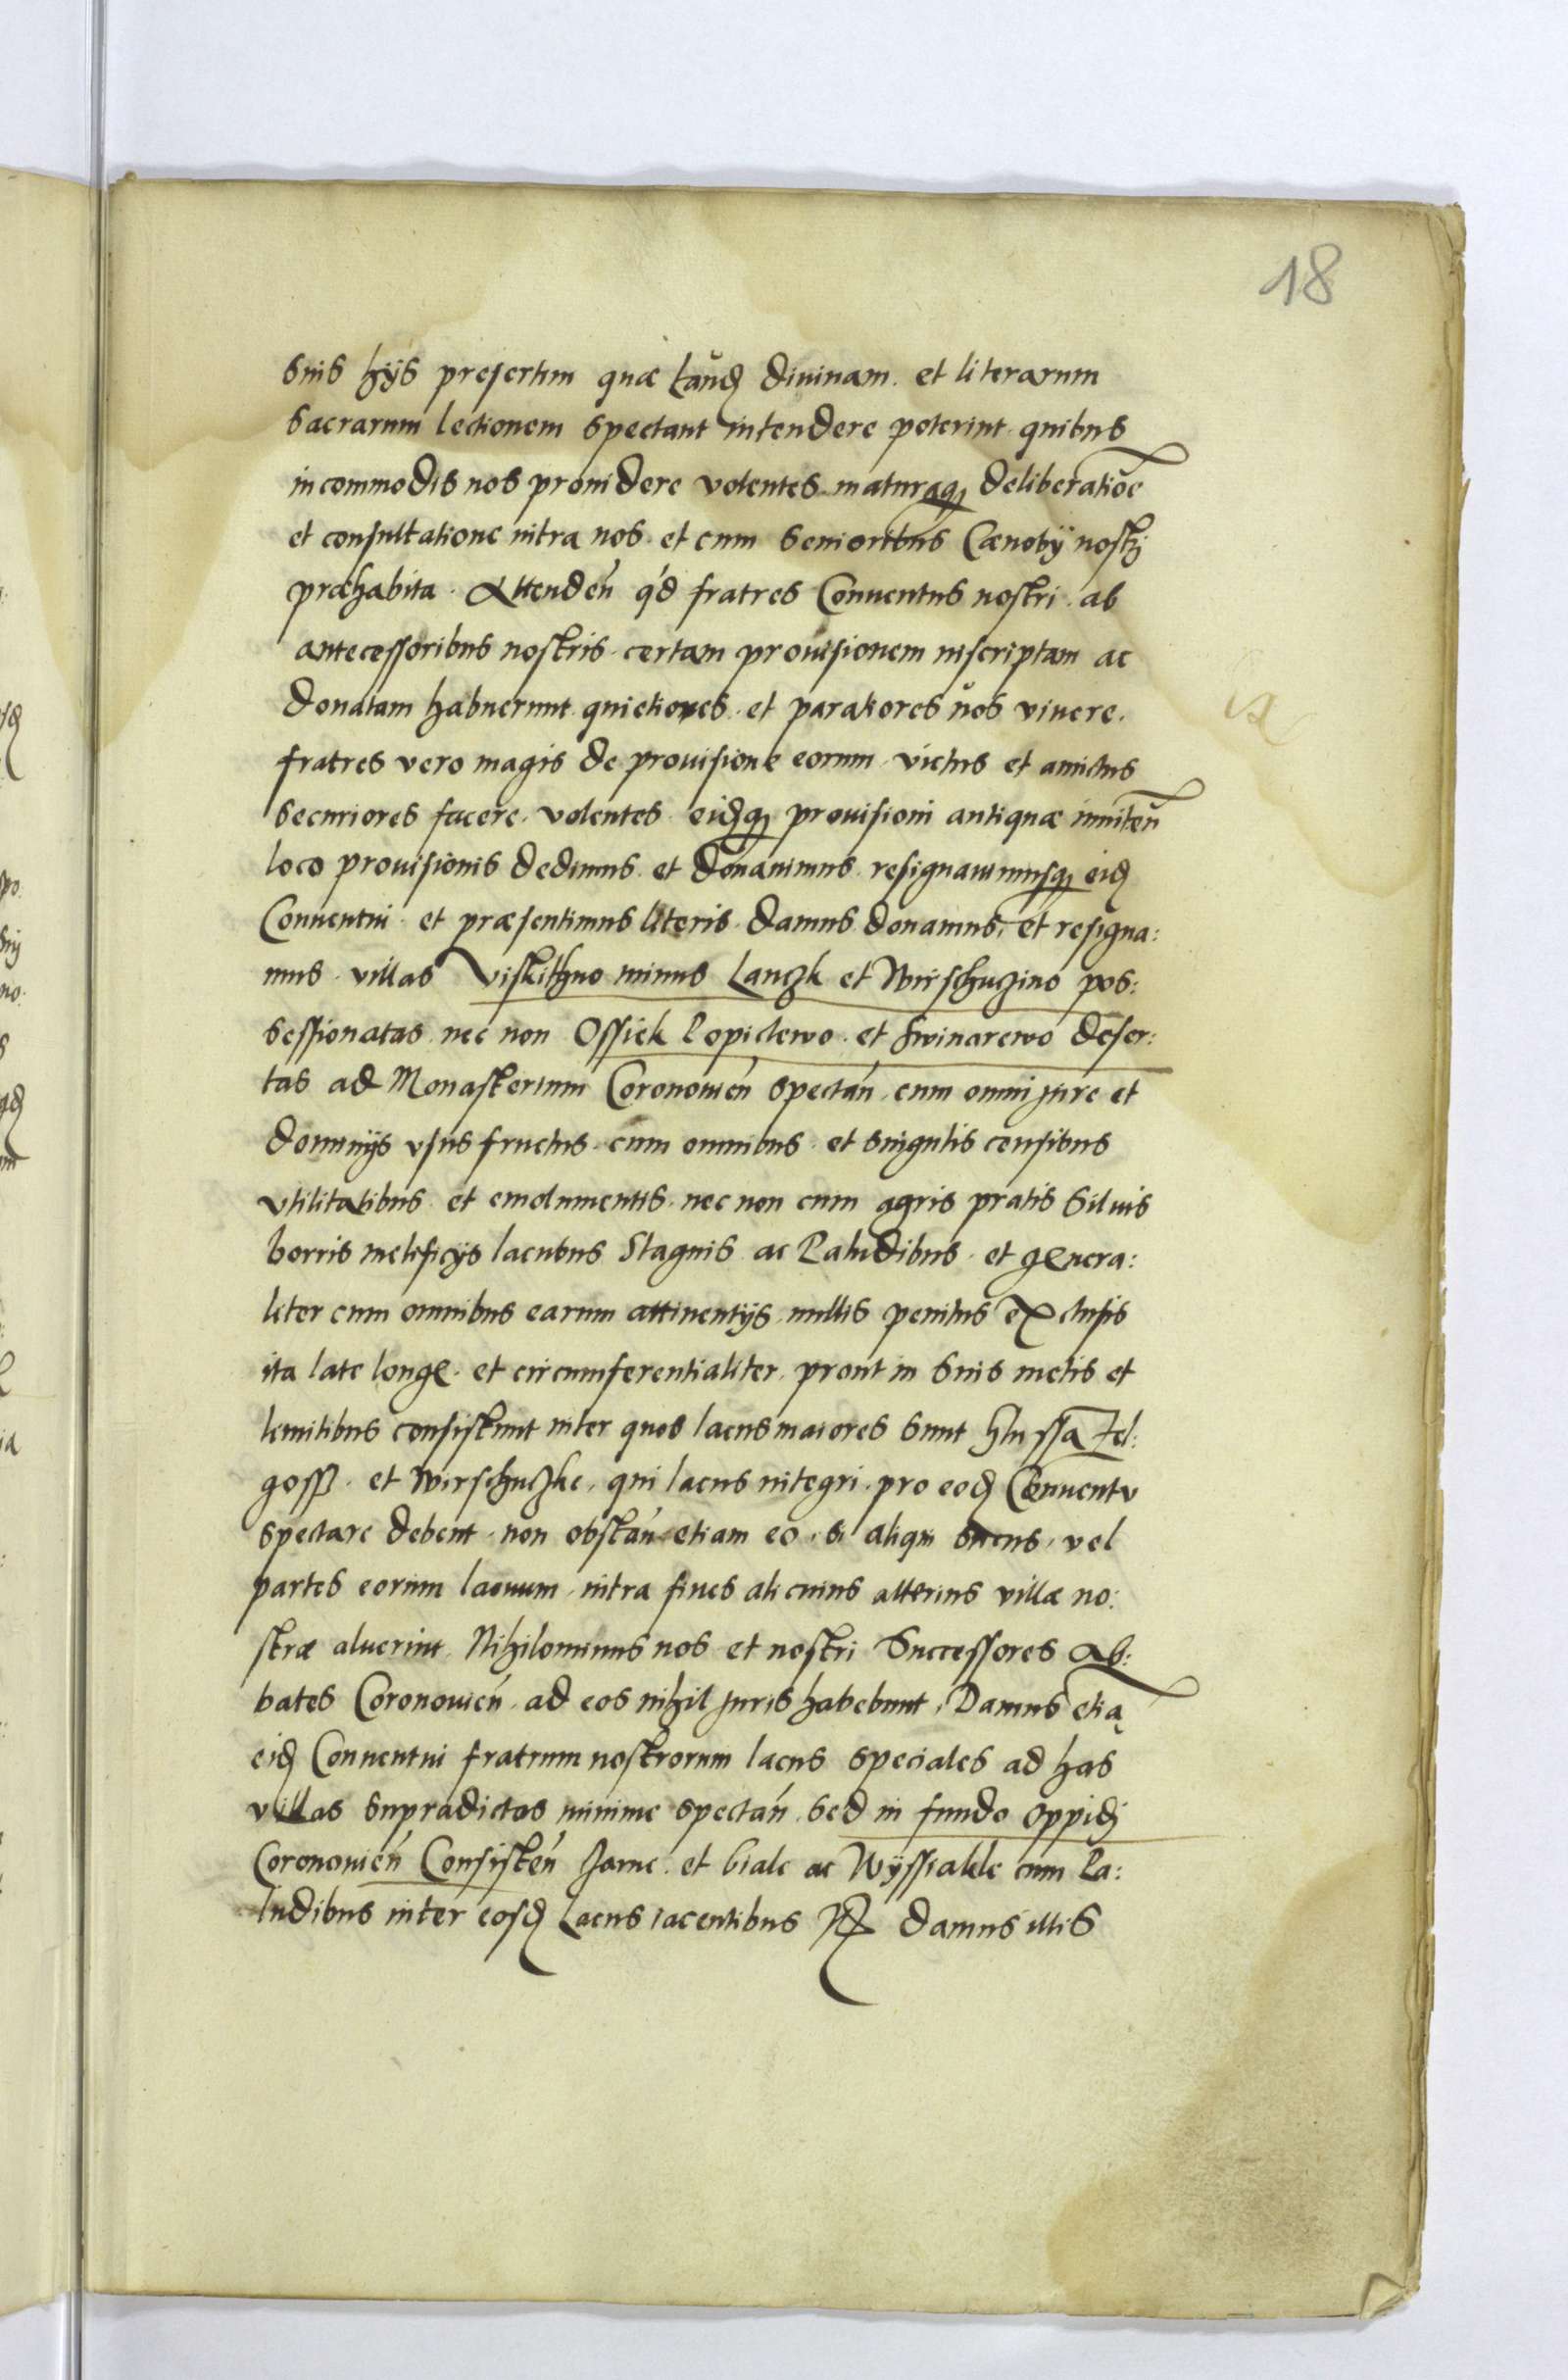 18
suis hÿs presertim quæ laudẽ diuinam. et literarum
sacrarum lectionem spectant intendere poterint quibus
incommodis nos prouidere volentes maturaq; deliberatiõe
et consultatione intra nos et cum senioribus Cænobÿ nostri
præhabita. Attendeñ q'd fratres Conuentus nostri ab
antecessoribus nostris certam prouisionem inscriptam ac
donatam habuerunt quietiores et paratiores nos viuere.
fratres vero magis de prouisione eorum victus et amictus
securiores facere volentes eidq; prouisioni antiquæ inniteñ
loco prouisionis dedimus et donauimus resignauimusq; eid
Conuentui et præsentimus literis damus donamus, et resigna:
mus villas Viskithno minus Lanczk et Wirschuczino pos:
sessionatas nec non Ossiek Popielewo et Swinarewo deser:
tas ad Monasterium Coronouień spectań cum omni jure et
dominÿs vsus fructus cum omnibus et singulis censibus
vtilitatibus et emolumentis nec non cum agris pratis siluis
borris meleficÿs lacubus Stagnis ac Paludibus et genera:
liter cum omnibus earum attinentÿs nullis penitus exclusis
ita late longe et circumferentialiter prout in suis metis et
limitibus consistunt inter quos lacus maiores sunt Slussa Tel:
gossz et Wirschuczke, qui lacus integri pro eod Conuentu
spectare debent non obstań etiam eo, si aliqui sinus, vel
partes eorum lacuum intra fines alicuius alterius villæ no:
stræ aluerint Nihilominus nos et nostri Successores Ab:
bates Coronouień ad eos nihil juris habebunt, Damus etiã
eid Conuentui fratrum nostrorum lacus speciales ad has
villas supradictas minime spectań sed in fundo oppidi
Coronouień Consisteń Jame et biale ac Wÿssiakle cum Pa:
ludibus inter eosd Lacus iacentibus damus illis